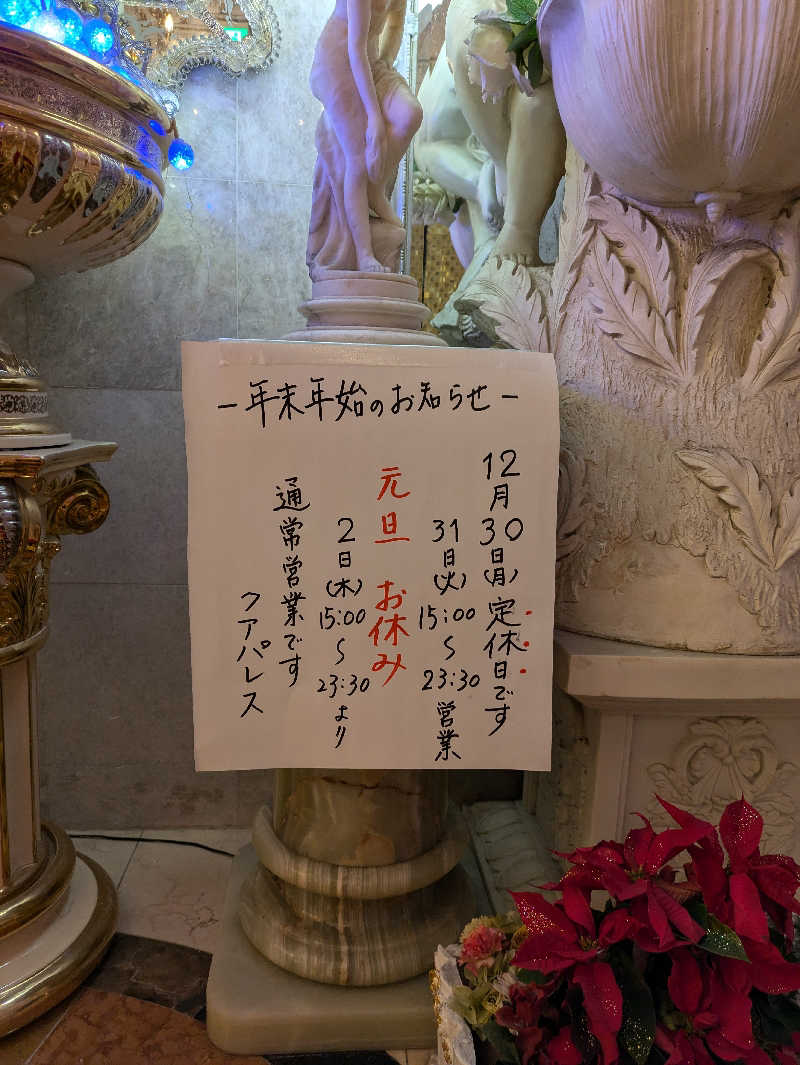 －年末年始のお知らせ－
12月30日(月)定休日です
31日(火)15:00〜23:30営業
元旦 お休み
2日(木)15:00〜23:30より
通常営業です
クアパレス